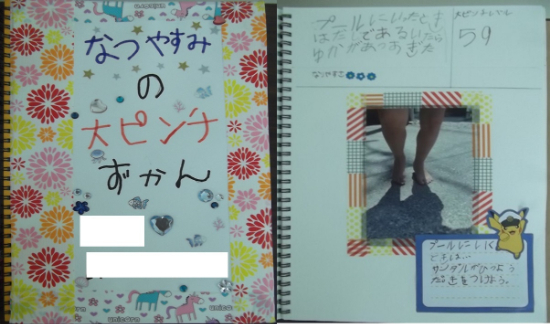 なつやすみ
の
大ピンチ
ずかん
unicorn
unicorn
プールにいったとき
はだしであるいたら
ゆかがあつすぎた
なりやすさ
大ピンチレベル
59
プールにいく
ときは…
サンダルがひつよう
だ
をつけよう。